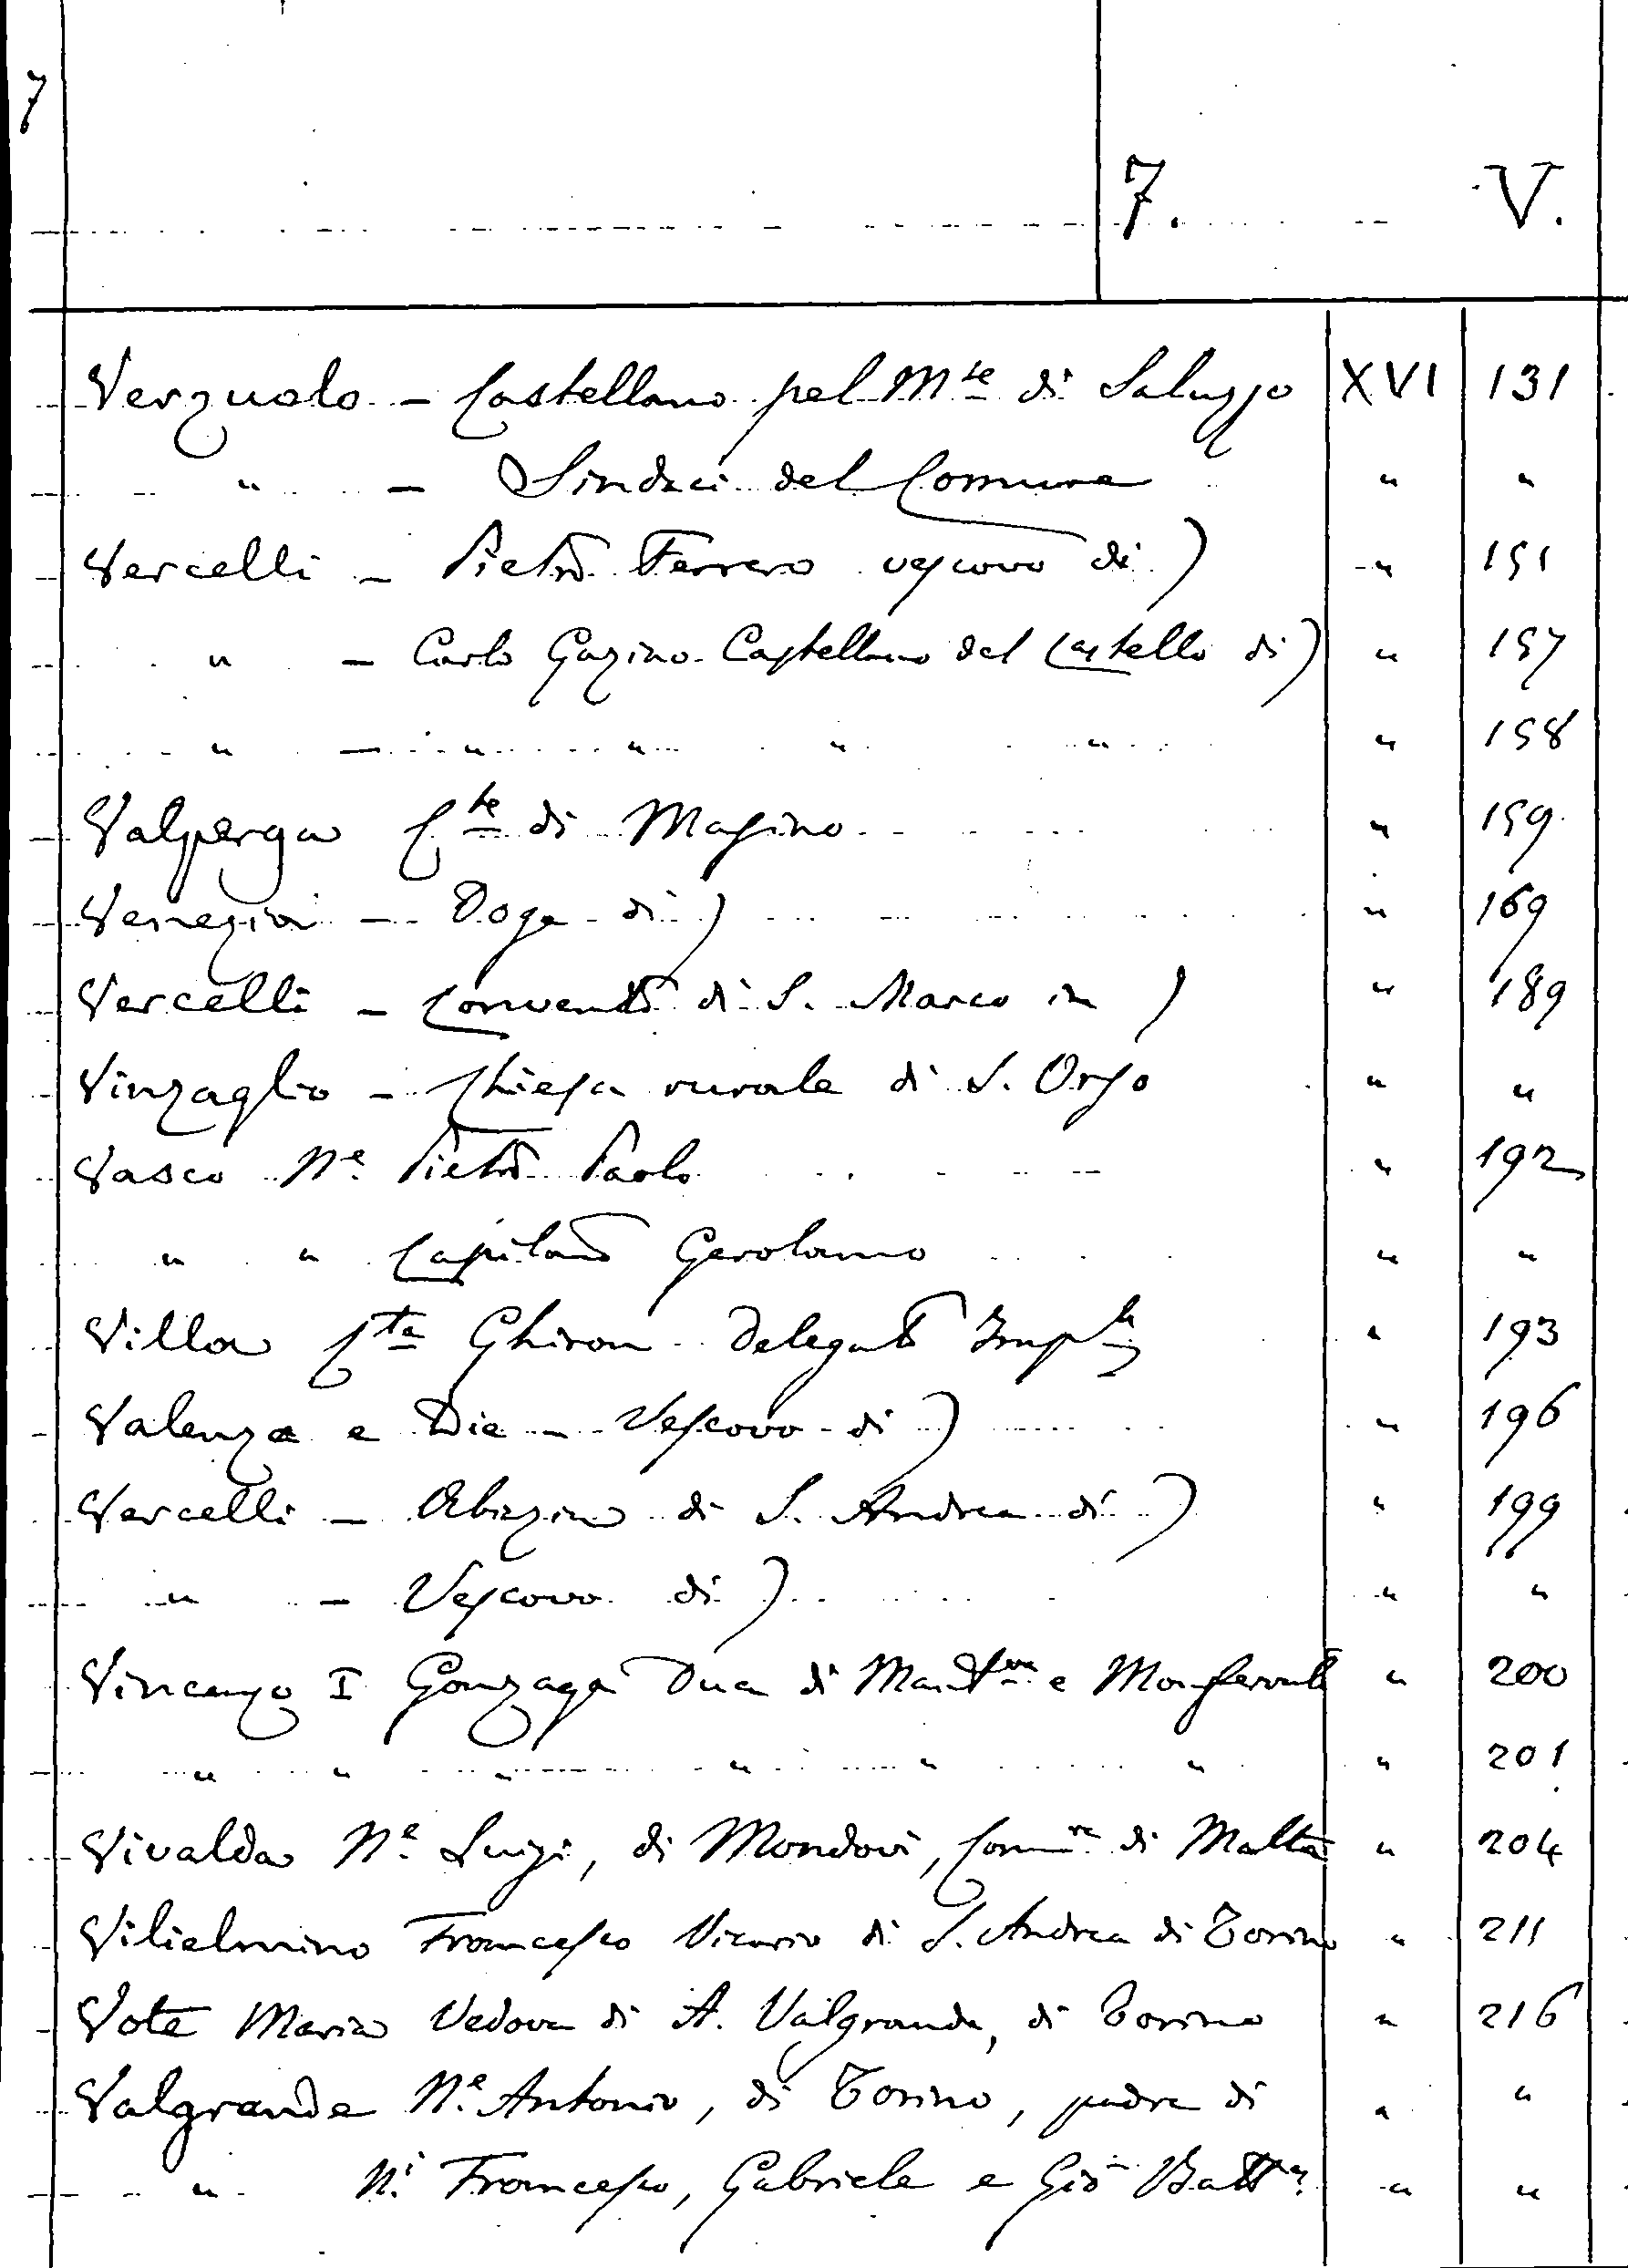 7
7. V.
Verzuolo - Castellano pel M.te di Saluzzo XVI 131
" - Sindaci del Comune " "
Vercelli - Pietro Ferrero vescovo di) " 151
" - Carlo Gazino Castellano del Castello di) " 157
" - " " " " " 158
Valperga C.te di Masino " 159
Venezia - Doge di) " 169
Vercelli - Convento di S. Marco in) " 189
Vinzaglio - Chiesa rurale di S. Orso " "
Vasco N.e Pietro Paolo " 192
" " Capitano Gerolamo " "
Villa C.te Ghiron Delegato Imp.le " 193
Valenza e Die - Vescovo di) " 196
Vercelli - Abazia di S. Andrea di) " 199
" - Vescovo di) " "
Vincenzo I Gonzaga Duca di Mant.va e Monferrato " 200
" " " " " " " 201
Vivalda N.e Luigi, di Mondovì, Com.re di Malta " 204
Vilielmino Francesco Vicario di S. Andrea di Torino " 211
Vote Maria Vedova di A. Valgrande, di Torino " 216
Valgrande N.e Antonio, di Torino, padre di " "
" N.i Francesco, Gabriele e Gio Batt.a " "